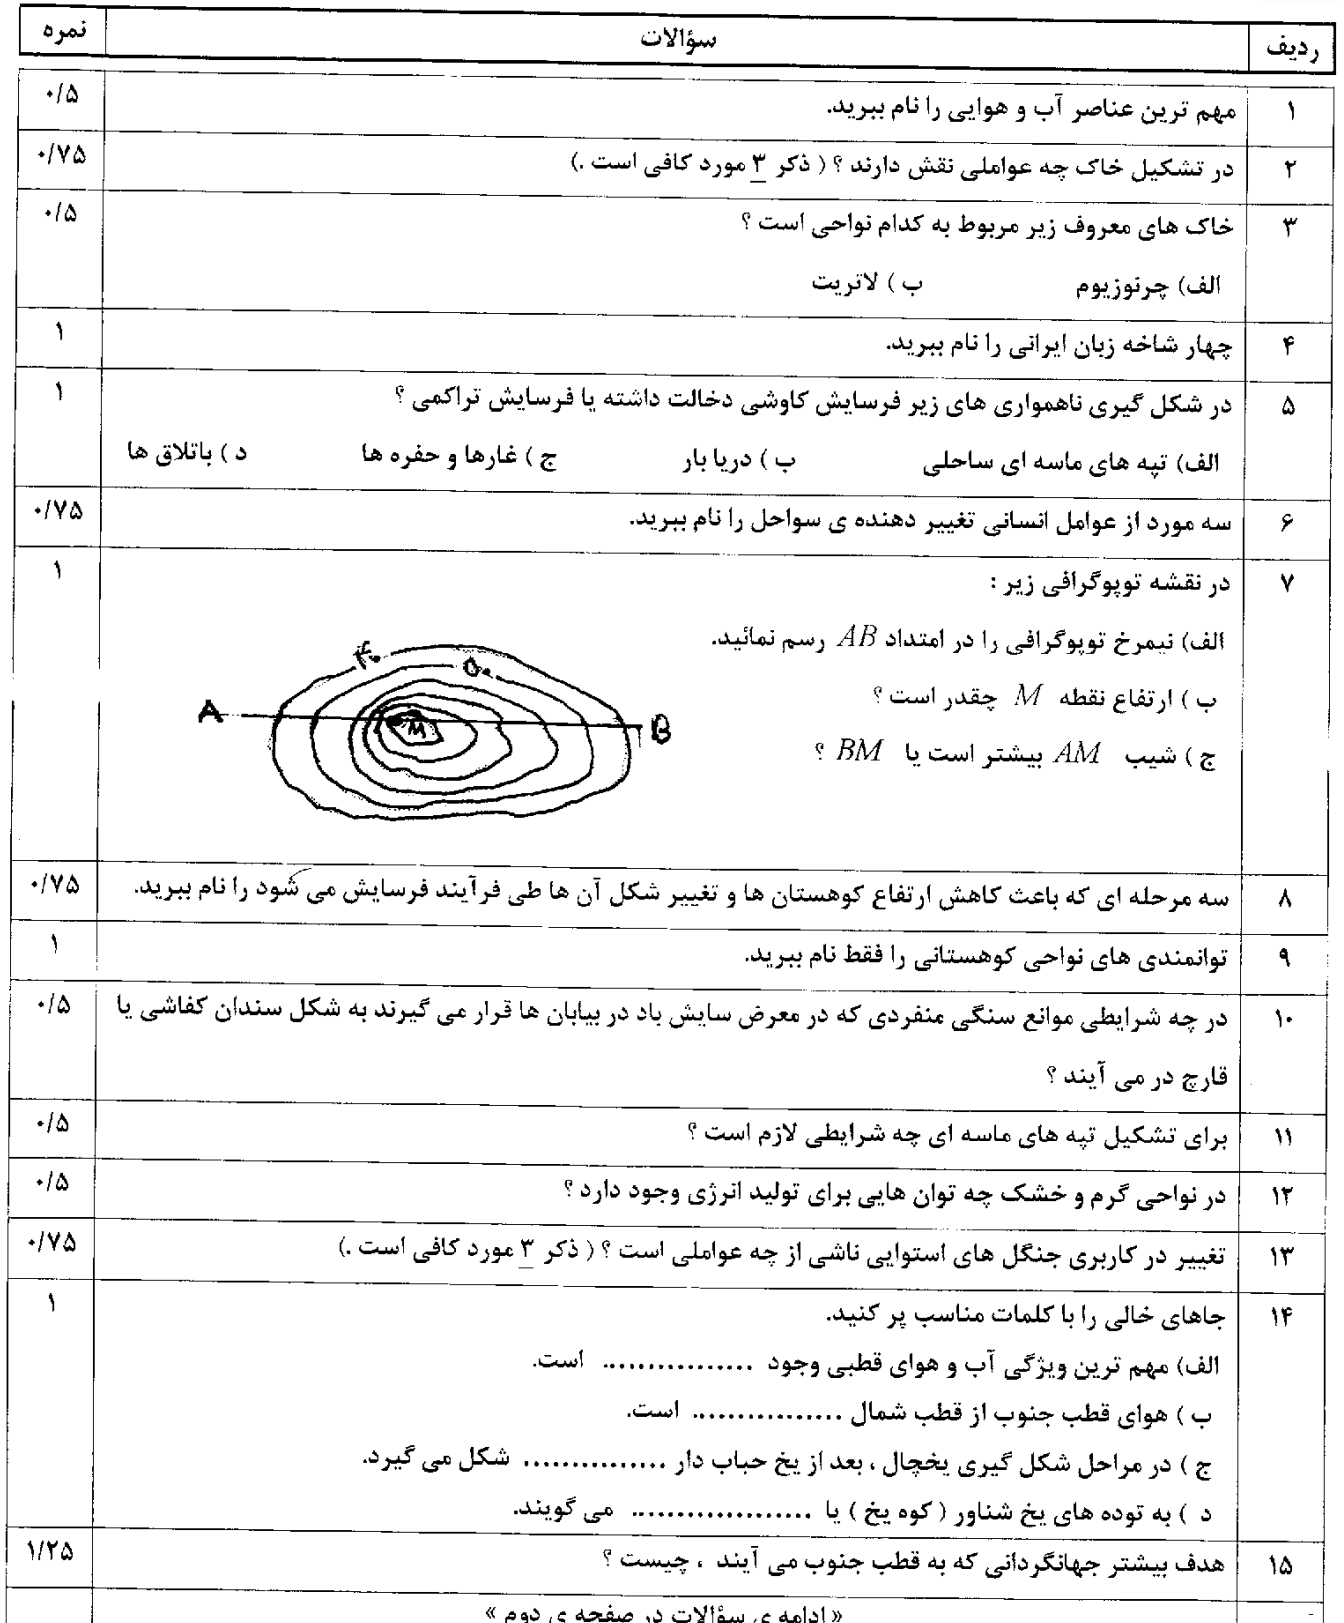 ردیف سؤالات نمره
۱ مهم ترین عناصر آب و هوایی را نام ببرید. ۰/۵
۲ در تشکیل خاک چه عواملی نقش دارند ؟ ( ذکر ۳ مورد کافی است .) ۰/۷۵
۳ خاک های معروف زیر مربوط به کدام نواحی است ؟ ۰/۵
الف) چرنوزیوم ب ) لاتریت
۴ چهار شاخه زبان ایرانی را نام ببرید. ۱
۵ در شکل گیری ناهمواری های زیر فرسایش کاوشی دخالت داشته یا فرسایش تراکمی ؟ ۱
الف) تپه های ماسه ای ساحلی ب ) دریا بار ج ) غارها و حفره ها د ) باتلاق ها
۶ سه مورد از عوامل انسانی تغییر دهنده ی سواحل را نام ببرید. ۰/۷۵
۷ در نقشه توپوگرافی زیر : ۱
الف) نیمرخ توپوگرافی را در امتداد AB رسم نمائید.
ب ) ارتفاع نقطه M چقدر است ؟
ج ) شیب AM بیشتر است یا BM ؟
۴۰
۵۰
A
M
B
۸ سه مرحله ای که باعث کاهش ارتفاع کوهستان ها و تغییر شکل آن ها طی فرآیند فرسایش می شود را نام ببرید. ۰/۷۵
۹ توانمندی های نواحی کوهستانی را فقط نام ببرید. ۱
۱۰ در چه شرایطی موانع سنگی منفردی که در معرض سایش باد در بیابان ها قرار می گیرند به شکل سندان کفاشی یا ۰/۵
قارچ در می آیند ؟
۱۱ برای تشکیل تپه های ماسه ای چه شرایطی لازم است ؟ ۰/۵
۱۲ در نواحی گرم و خشک چه توان هایی برای تولید انرژی وجود دارد ؟ ۰/۵
۱۳ تغییر در کاربری جنگل های استوایی ناشی از چه عواملی است ؟ ( ذکر ۳ مورد کافی است .) ۰/۷۵
۱۴ جاهای خالی را با کلمات مناسب پر کنید. ۱
الف) مهم ترین ویژگی آب و هوای قطبی وجود ................. است.
ب ) هوای قطب جنوب از قطب شمال ................. است.
ج ) در مراحل شکل گیری یخچال ، بعد از یخ حباب دار ................ شکل می گیرد.
د ) به توده های یخ شناور ( کوه یخ ) یا .................... می گویند.
۱۵ هدف بیشتر جهانگردانی که به قطب جنوب می آیند ، چیست ؟ ۱/۲۵
« ادامه ی سؤالات در صفحه ی دوم »